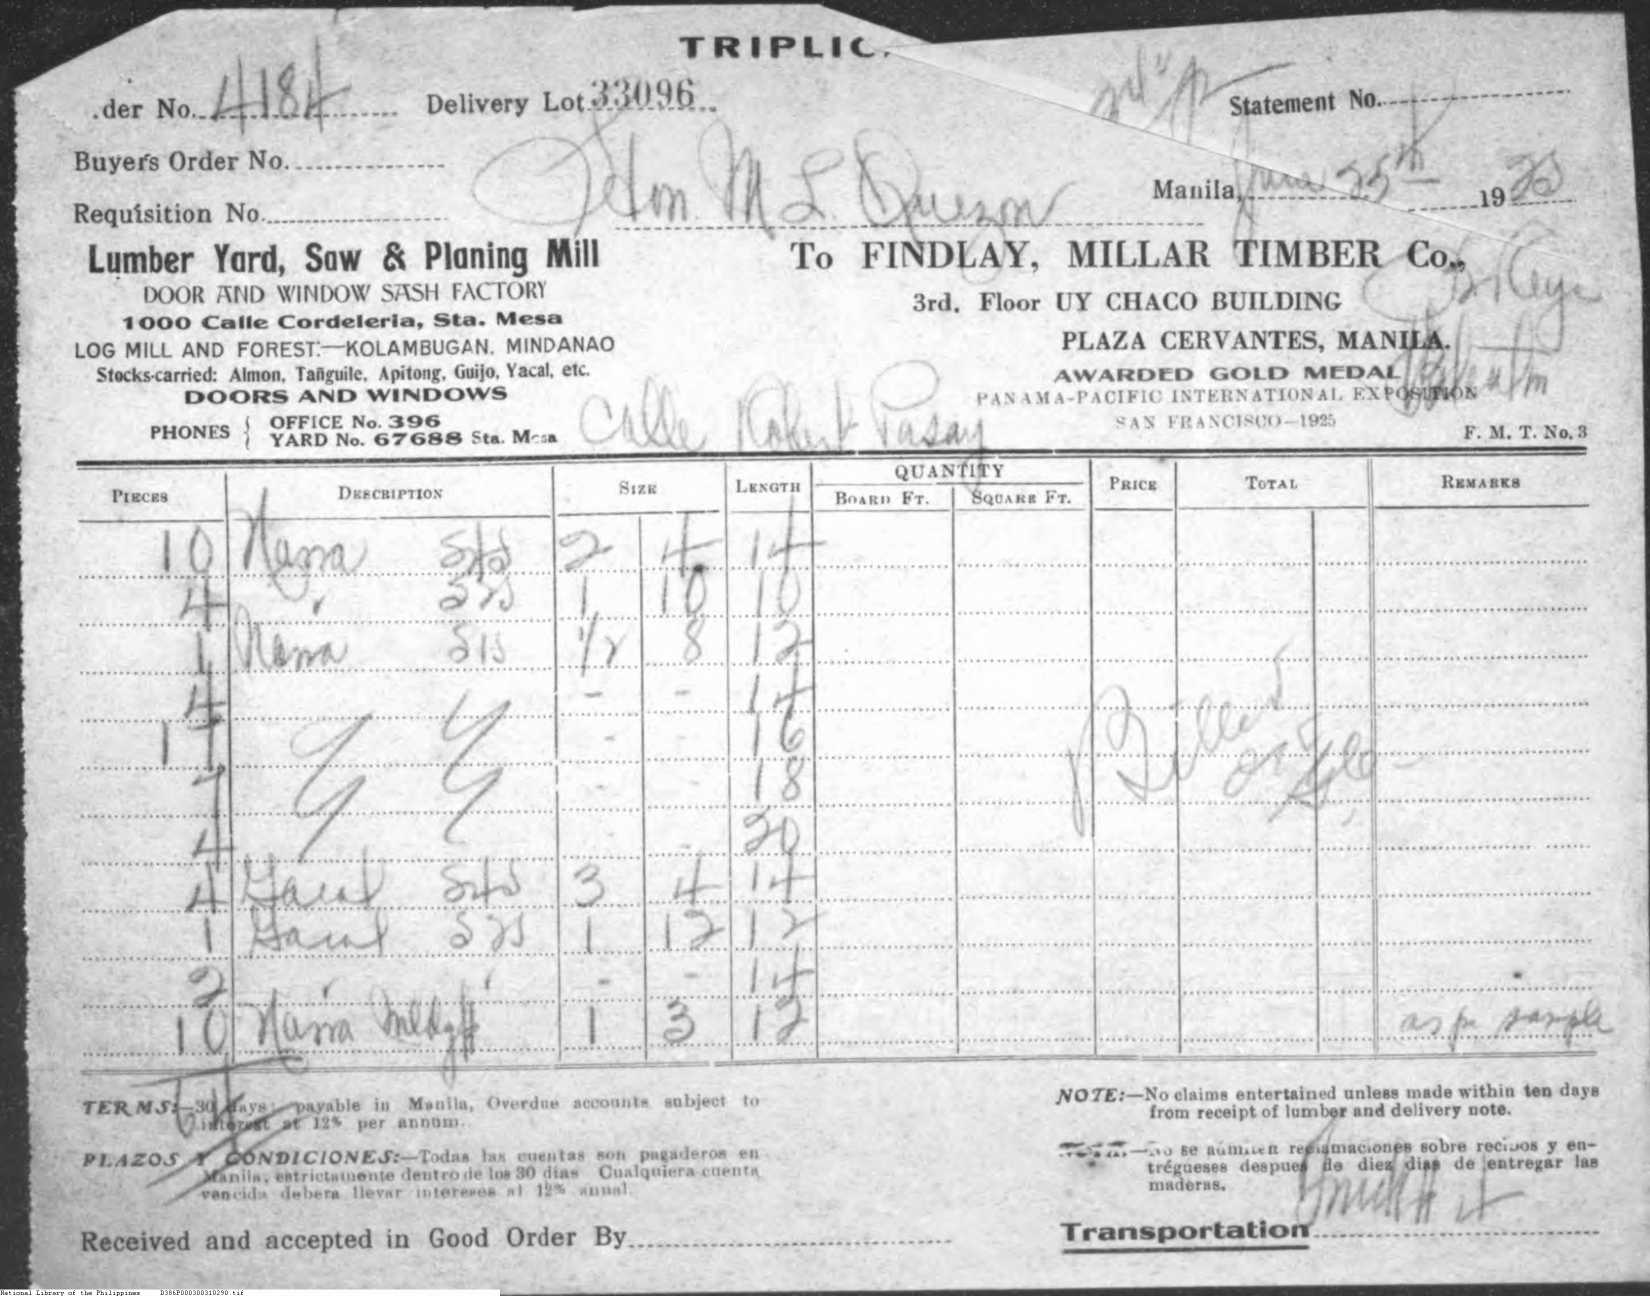 TRIPLIC.
.der No. 4184 Delivery Lot 33096 Statement No.
Buyer's Order No.
Hon. M L. Quezon
Manila, June 25th 1925
Requisition No.
Lumber Yard, Saw & Planing Mill
DOOR AND WINDOW SASH FACTORY
1000 Calle Cordeleria, Sta. Mesa
LOG MILL AND FOREST:—KOLAMBUGAN. MINDANAO
Stocks-carried: Almon, Tañguile, Apitong, Guijo, Yacal, etc.
DOORS AND WINDOWS
PHONES { OFFICE No. 396
YARD No. 67688 Sta. Mesa
To FINDLAY, MILLAR TIMBER Co.,
3rd. Floor UY CHACO BUILDING
PLAZA CERVANTES, MANILA.
AWARDED GOLD MEDAL
PANAMA-PACIFIC INTERNATIONAL EXPOSITION
SAN FRANCISCO—1925
F. M. T. No. 3
Calle Robert Pasay
PIECES DESCRIPTION SIZE LENGTH QUANTITY PRICE TOTAL REMARKS
BOARD FT. SQUARE FT.
10 Narra S4S 2 4 14
4 " S2S 1 10 10
1 Narra S1S 1/2 8 12
4 - - 14
17 - - 16
7 - - 18
4 - 20
4 S4S 3 4 14
1 S2S 1 12 12
2 ' ' - - 14
10 Narra Mldg 1 3 12 as per sample
Billed
64
TERMS:—30 days payable in Manila, Overdue accounts subject to
interest at 12% per annum.
PLAZOS Y CONDICIONES:—Todas las cuentas son pagaderos en
Manila, estrictamente dentro de los 30 dias Cualquiera cuenta
vencida debera llevar intereses al 12% anual.
NOTE:—No claims entertained unless made within ten days
from receipt of lumber and delivery note.
—No se admiten reclamaciones sobre recibos y en-
trégueses despues de diez dias de entregar las
maderas.
Received and accepted in Good Order By
Transportation
National Library of the Philippines D386P000300310290.tif